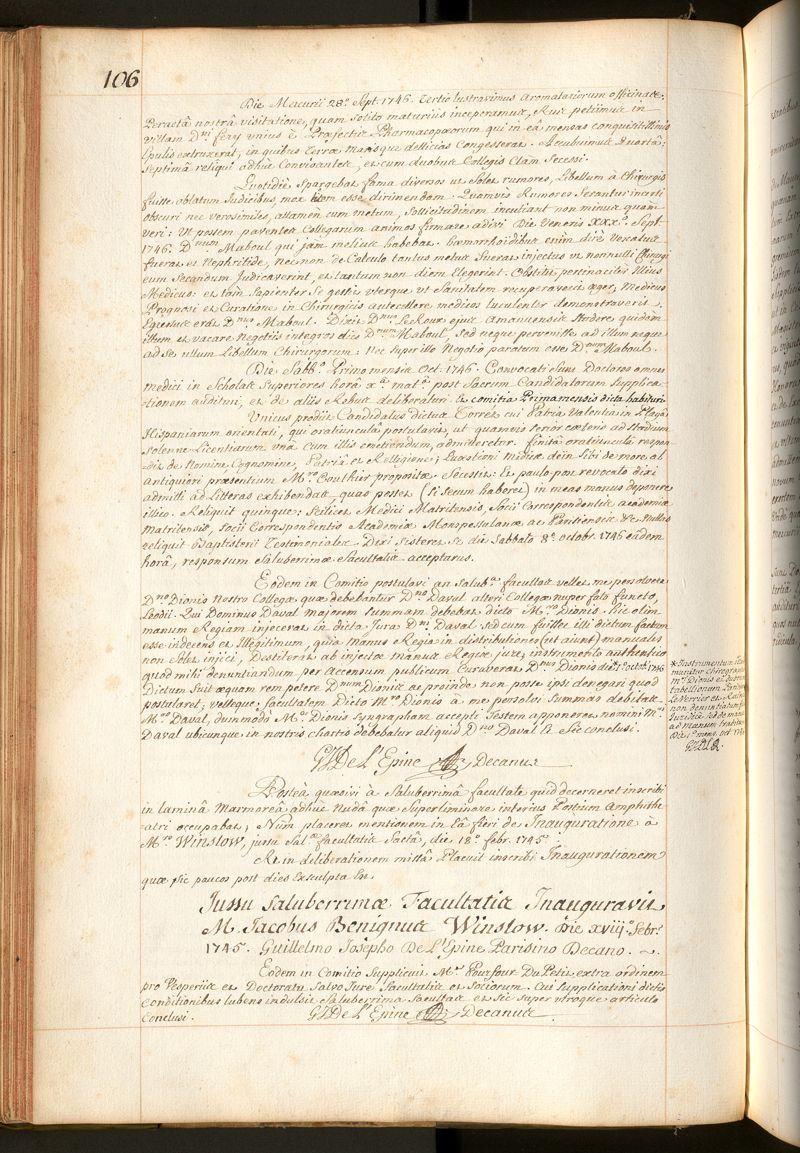 106
Die Mercurii 28.ª Sept. 1746. Tertio lustravimus aromatariorum officinas.
Peractâ nostrâ visitatione, quam solito maturius inceperamus, Rus petiimus in
villam D.ni fery unius è Præfectis Pharmacopæorum qui in eâ mensas conquisitissimis
Epulis extruxerat, in quibus Terræ Marisque delicias Congesserat. Accubuimus Quartâ;
Septimâ reliqui adhuc Convivantes, et cum duobus Collegis Clam Secessi.
Quotidiè Spargebat fama diversos ut Solet rumores, Libellum à Chirurgis
fuisse oblatum Judicibus, mox litem esse dirimendam. Quamvis Rumores Serantur incerti
obscuri nec verosimiles, attamen cum metum, Sollicitudinem incutiant non minus quam
veri: Ut possem paventes Collegarum animos firmare adivi Die Veneris XXX.ª Sept.
1746. D.num Maboul qui jam melius habebat. hæmrrhoïdibus enim dirè vexatus
fuerat et Nephritide, nec non de Calculo tantus metus fuerat injectus ut nonnulli Chirurgi
eum Secandum Judicaverint, et tantum non diem Elegerint. Obstitit pertinaciter Illius
Medicus: et tam Sapienter Se gessit uterque ut Sanitatem recuperaverit æger, Medicus
Prognosi et Curatione in Chirurgicis antecellere medicos luculenter demonstraverit.
Egressus erat D.nus Maboul. Dixit D.nus LeRoux ejus Amanuensis Ardere quidem
illum et vacare Negotiis integros dies D.num Maboul, Sed neque pervenisse ad illum neque
ad Se ullum Libellum Chirurgorum: nec Super illo Negotio paratum esse D.num Maboul.
Die Sabb.º Primo mensis Oct. 1746. Convocati Sunt Doctores omnes
medici in Scholas Superiores horâ x.ª mat.ª post Sacrum Candidatorum Supplica-
-tionem audituri, et de aliis Rebus deliberaturi. Et comitia Primamensis dicta habituri.
Unicus prodiit Candidatus dictus Torres cui Patria Valentia in Plagâ
Hispaniarum orientali, qui oratiunculâ postulavit, ut quamvis Serior cæteris ad Stadium
Solenne Licentiarum unà cum illis emetiendum, admitteretur. finitâ oratiunculâ respon-
-dit de Nomine, Cognomine, Patriâ et Religione; Quæstioni medicæ dein Sibi de more al
Antiquiori præsentium M.ro Couthier propositæ. Secessit. Et paulo post revocato dixi
admitti ad Litteras exhibendas, quas posset (Si Secum haberet) in meas manus deponere
illico. Reliquit quinque: Scilicet Medici Matritensis, Socii Correspondentis academiæ
Matritensis, Socii Correspondentis Academiæ Monspessulanæ ac Parisiensis &c Nullas
reliquit Baptisterii Testimoniales. Dixi Sisteret Se die Sabbato 8.ª octobr. 1746 eâdem
horâ, responsum Saluberrimæ facultatis accepturus.
Eodem in Comitio postulavi an Salub.ª facultas vellet me persolvere
D.no Dionis Nostro Collegæ quæ debebantur D.no Daval alteri Collegæ nuper fato functo,
Qui Dominus Daval majorem Summam debebat dicto M.ro Dionis. hic olim
manum Regiam injecerat in dicta Jura D.ni Daval Sed cum fuisset illi dictum factum
esse indecens et Illegitimum, quia manus Regia in distributiones (ut aiunt) manuales
non Solet injici, Destiterat ab injectâ manus Regiæ jure, instrumento authentico
quod mihi denuntiandum per accensum publicum Curaverat D.nus Dionis die 1.ª octob. 1746
Dictum fuit æquam rem petere D.num Dionis ac proinde non posse ipsi denegari quod
postularet; velleque facultatem Dicto M.ro Dionis à me persolvi Summas debitas
M.ro Daval, dummodo M.r Dionis Syngrapham accepti Testem apponeret nomini M.ri
Daval ubicunque in nostris chartis debebatur aliquid D.no Daval Et Sic conclusi.
* Instrumentum illud
munitur chirographis
M.ri Dionis et Duorum
tabellionum
Le Verrier et
non denuntiatum fuit
Juridicè Sed de manu
ad manum traditum
Die 1.ª mens. oct. 1746
GJDLE.
GJDe L'Epine Decanus
Posteà quæsivi à Saluberrimâ facultate quid decerneret inscribi
in laminâ Marmoreâ adhuc Nudâ quæ Superliminare interius Ostium Amphithe
atri occupabat; Num placeret mentionem in Eâ fieri de Inauguratione à
M.ro Winslow, jussu Sal.æ facultatis factâ, die 18.ª febr. 1745.
Re in deliberationem missâ Placuit inscribi Inaugurationem
quæ Sic paucos post dies Exsculpta Est
Jussu Saluberrimæ Facultatis Inauguravit
M. Jacobus Benignus Winslow. Die xviij.ª febr.
1745. Guillelmo Josepho De L'Epine Parisino Decano.
Eodem in Comitio Supplicuit M.r Pourfour Du Petit extra ordinem
pro Vesperiis et Doctoratu Salvo Jure facultatis et Sociorum. Cui Supplicationi dictis
Conditionibus lubens indulsit Saluberrima facultas et Sic Super utroque articulo
Conclusi.
GJDe L'Epine Decanus